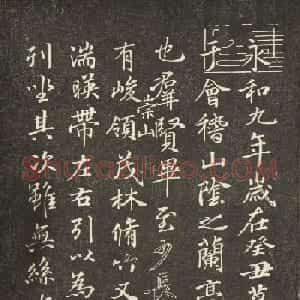 永和九年歲在癸丑
于會稽山陰之蘭亭
也羣賢畢至少長
有崇山峻領茂林脩竹又
湍暎帶左右引以為
列坐其次雖無絲